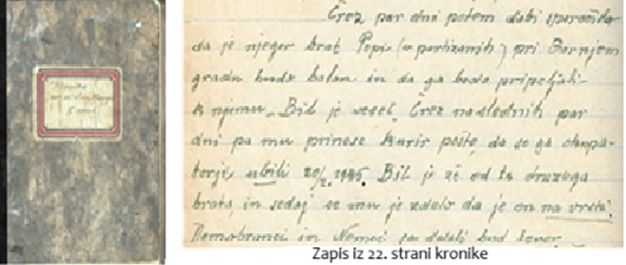 Kronika
Črez par dni potem dobi sporočilo
da je njegov brat Pepi (v partizanih) pri Gornjem
gradu hudo bolan in da ga bodo pripeljali
k njemu. Bil je vesel. Črez naslednih par
dni pa mu prinese kurir pošto, da so ga okupa-
torji ubili 1945. Bil je že od druzega
brata, in sedaj se mu je zdelo da je on na vrsti.
Domobranci in Nemci so delali hud teror.
Zapis iz 22. strani kronike